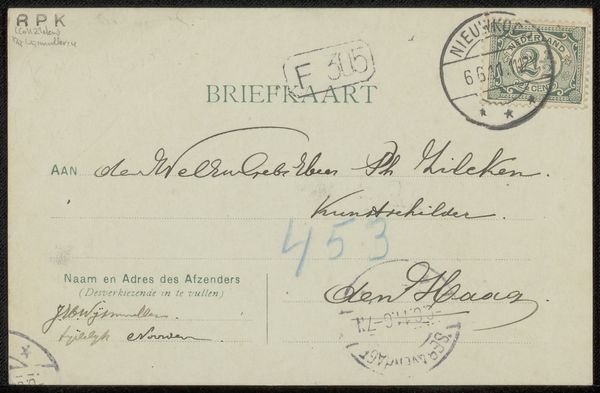 RPK
(Coll. Zilcken)
F 305
BRIEFKAART
NIEUWKOOP
6.6.11.
NEDERLAND
2½
CENT
AAN den WelEdelGeb. Heer Ph Zilcken.
Kunstschilder.
453
den Haag
Naam en Adres des Afzenders
(Desverkiezende in te vullen)
JHWijsmuller.
tijdelijk Noorden
'SGRAVENHAGE